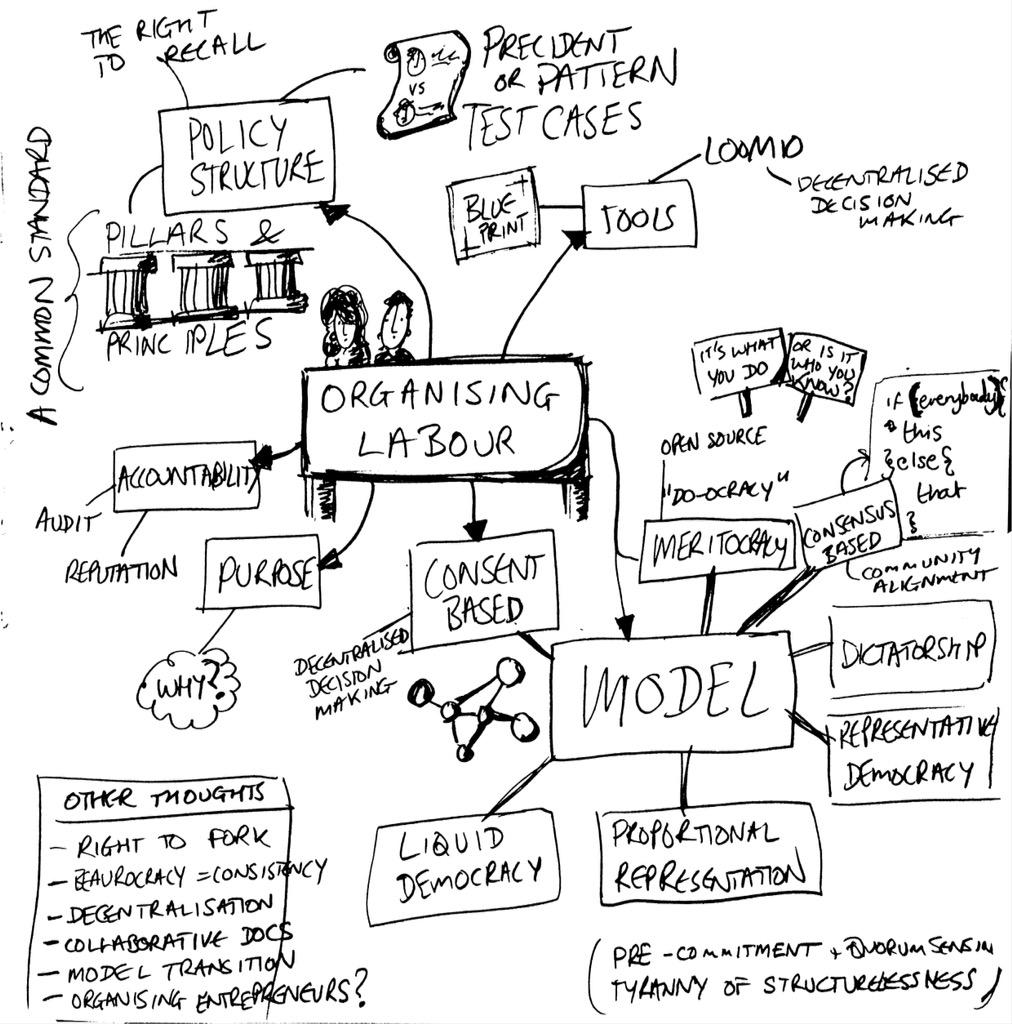 THE RIGHT
TO RECALL
PRECIDENT
OR PATTERN
TEST CASES
VS
POLICY
STRUCTURE
A COMMON STANDARD
PILLARS &
PRINCIPLES
BLUE
PRINT
TOOLS
LOOMIO
DECENTRALISED
DECISION
MAKING
ORGANISING
LABOUR
IT'S WHAT
YOU DO
OR IS IT
WHO YOU
KNOW?
if (everybody){
this
}else{
that
}
OPEN SOURCE
"DO-OCRACY"
MERITOCRACY
CONSENSUS
BASED
COMMUNITY
ALIGNMENT
ACCOUNTABILITY
AUDIT
REPUTATION
PURPOSE
WHY?
CONSENT
BASED
DECENTRALISED
DECISION
MAKING
MODEL
DICTATORSHIP
REPRESENTATIVE
DEMOCRACY
LIQUID
DEMOCRACY
PROPORTIONAL
REPRESENTATION
OTHER THOUGHTS
- RIGHT TO FORK
- BEAUROCRACY = CONSISTENCY
- DECENTRALISATION
- COLLABORATIVE DOCS
- MODEL TRANSITION
- ORGANISING ENTREPRENEURS?
(PRE-COMMITMENT + QUORUM SENSIN
TYRANNY OF STRUCTURELESSNESS)